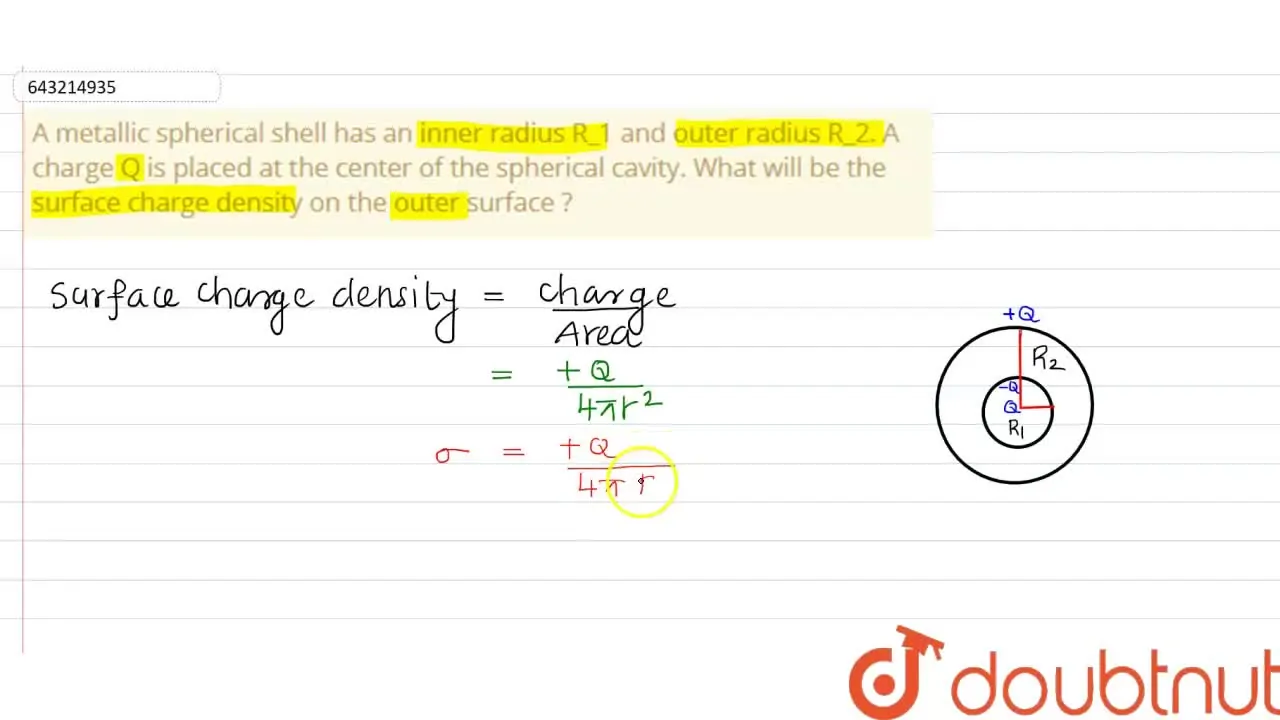 643214935
A metallic spherical shell has an inner radius R_1 and outer radius R_2. A
charge Q is placed at the center of the spherical cavity. What will be the
surface charge density on the outer surface ?
Surface charge density = charge
Area
= +Q
4πr²
σ = +Q
4π r
+Q
R2
-Q
Q
R1
doubtnut